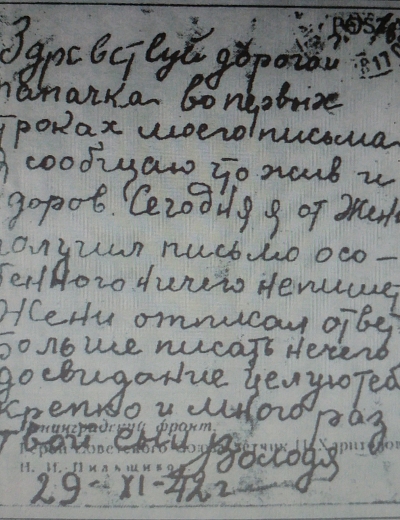 Здравствуй дорогой
папачка во первых
троках моего письма
я сообщаю что жив и
здоров. Сегодня я от Жени
получил письмо осо-
бенного ничего непишет
Жени отписал ответ
больше писать нечего
досвидание целую теб
крепко и много раз
Ленинградский фронт.
твой сын Володя
Герой Советского Союза летчик П. Харитонов
Н. И. Пильщиков
29-XI-42г